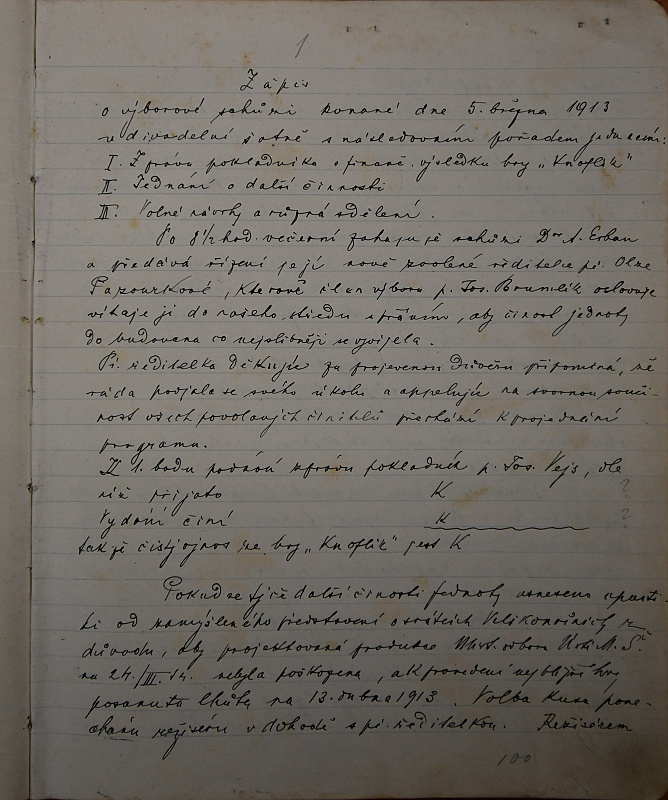 1
Zápis
o výborové schůzi konané dne 5. března 1913
v divadelní šatně s následovním pořadem jednacím:
I. Zpráva pokladníka o finanč. výsledku hry „Knoflík"
II. Jednání o další činnosti
III. Volné návrhy a různá sdělení.
Po 8½ hod. večerní zahajuje schůzi Dr. A. Erban
a předává řízení její nově zvolené ředitelce pí. Olze
Pazourkové, kterově člen výboru p. Jos. Brumlík oslovuje
vítaje ji do našeho středu s přáním, aby činost jednoty
do budovana co nejslibněji se vyvíjela.
Pí. ředitelka děkujíc za projevenou důvěru připomíná, že
ráda podjala se svého úkolu a appelujíc na svornou souči-
nost všech povolaných činitelů přechází k projednání
programu.
K 1. bodu podává zprávu pokladník p. Jos. Vejs, dle
níž přijato K ?
Vydání činí K ?
takže čistý výnos ze hry „Knoflík" jest K
Pokud se týče další činosti jednoty usneseno upusti-
ti od zamýšleného představení o svátcích Velikonočních z
důvodu, aby projektovaná produkce odboru Ústř. M. Š.
na 24./III. t.r. nebyla poškozena, a k provedení nejbližší hry
posunuta lhůta na 13. dubna 1913. Volba kusu pone-
chánu režiséru v dohodě s pí. ředitelkou. Režisérem
100